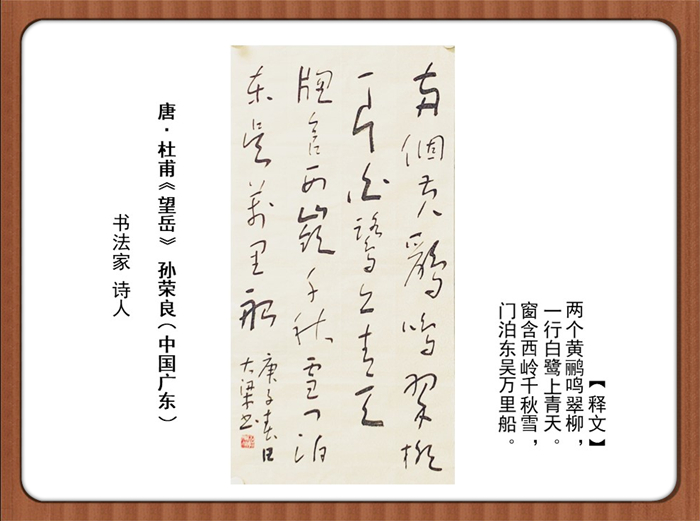 【释文】
两个黄鹂鸣翠柳，
一行白鹭上青天。
窗含西岭千秋雪，
门泊东吴万里船。
两個黄鸝鸣翠柳
一行白鹭上青天
窗含西嶺千秋雪门泊
东吴萬里船
庚子春日
大梁书
唐·杜甫《望岳》 孙荣良（中国广东）
书法家 诗人